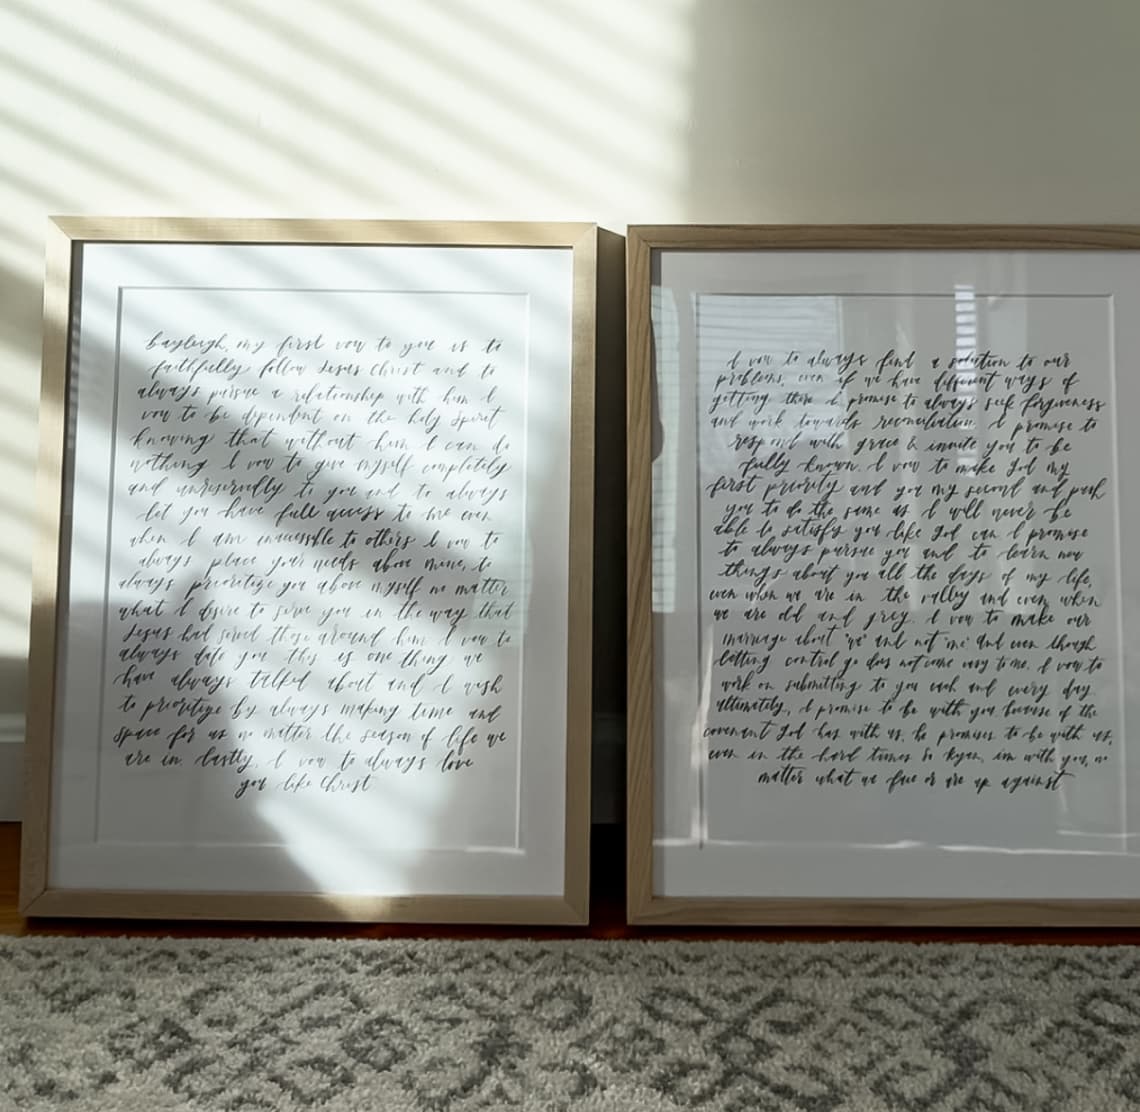 bayleigh, my first vow to you is to
faithfully follow Jesus Christ and to
always pursue a relationship with him I
vow to be dependent on the holy spirit
knowing that without him I can do
nothing I vow to give myself completely
and unreservedly to you and to always
let you have full access to me even
when I am inaccessible to others I vow to
always place your needs above mine, to
always prioritize you above myself no matter
what I desire to serve you in the way that
Jesus had served those around him I vow to
always date you this is one thing we
have always talked about and I wish
to prioritize by always making time and
space for us no matter the season of life we
are in lastly, I vow to always love
you like Christ
I vow to always find a solution to our
problems, even if we have different ways of
getting there I promise to always seek forgiveness
and work towards reconciliation. I promise to
respond with grace & invite you to be
fully known. I vow to make God my
first priority and you my second and push
you to do the same as I will never be
able to satisfy you like God can I promise
to always pursue you and to learn new
things about you all the days of my life,
even when we are in the valley and even when
we are old and grey. I vow to make our
marriage about "we" and not "me" and even though
letting control go does not come easy to me. I vow to
work on submitting to you each and every day
ultimately, I promise to be with you because of the
covenant God has with us. he promises to be with us,
even in the hard times so Ryan, im with you, no
matter what we face or are up against